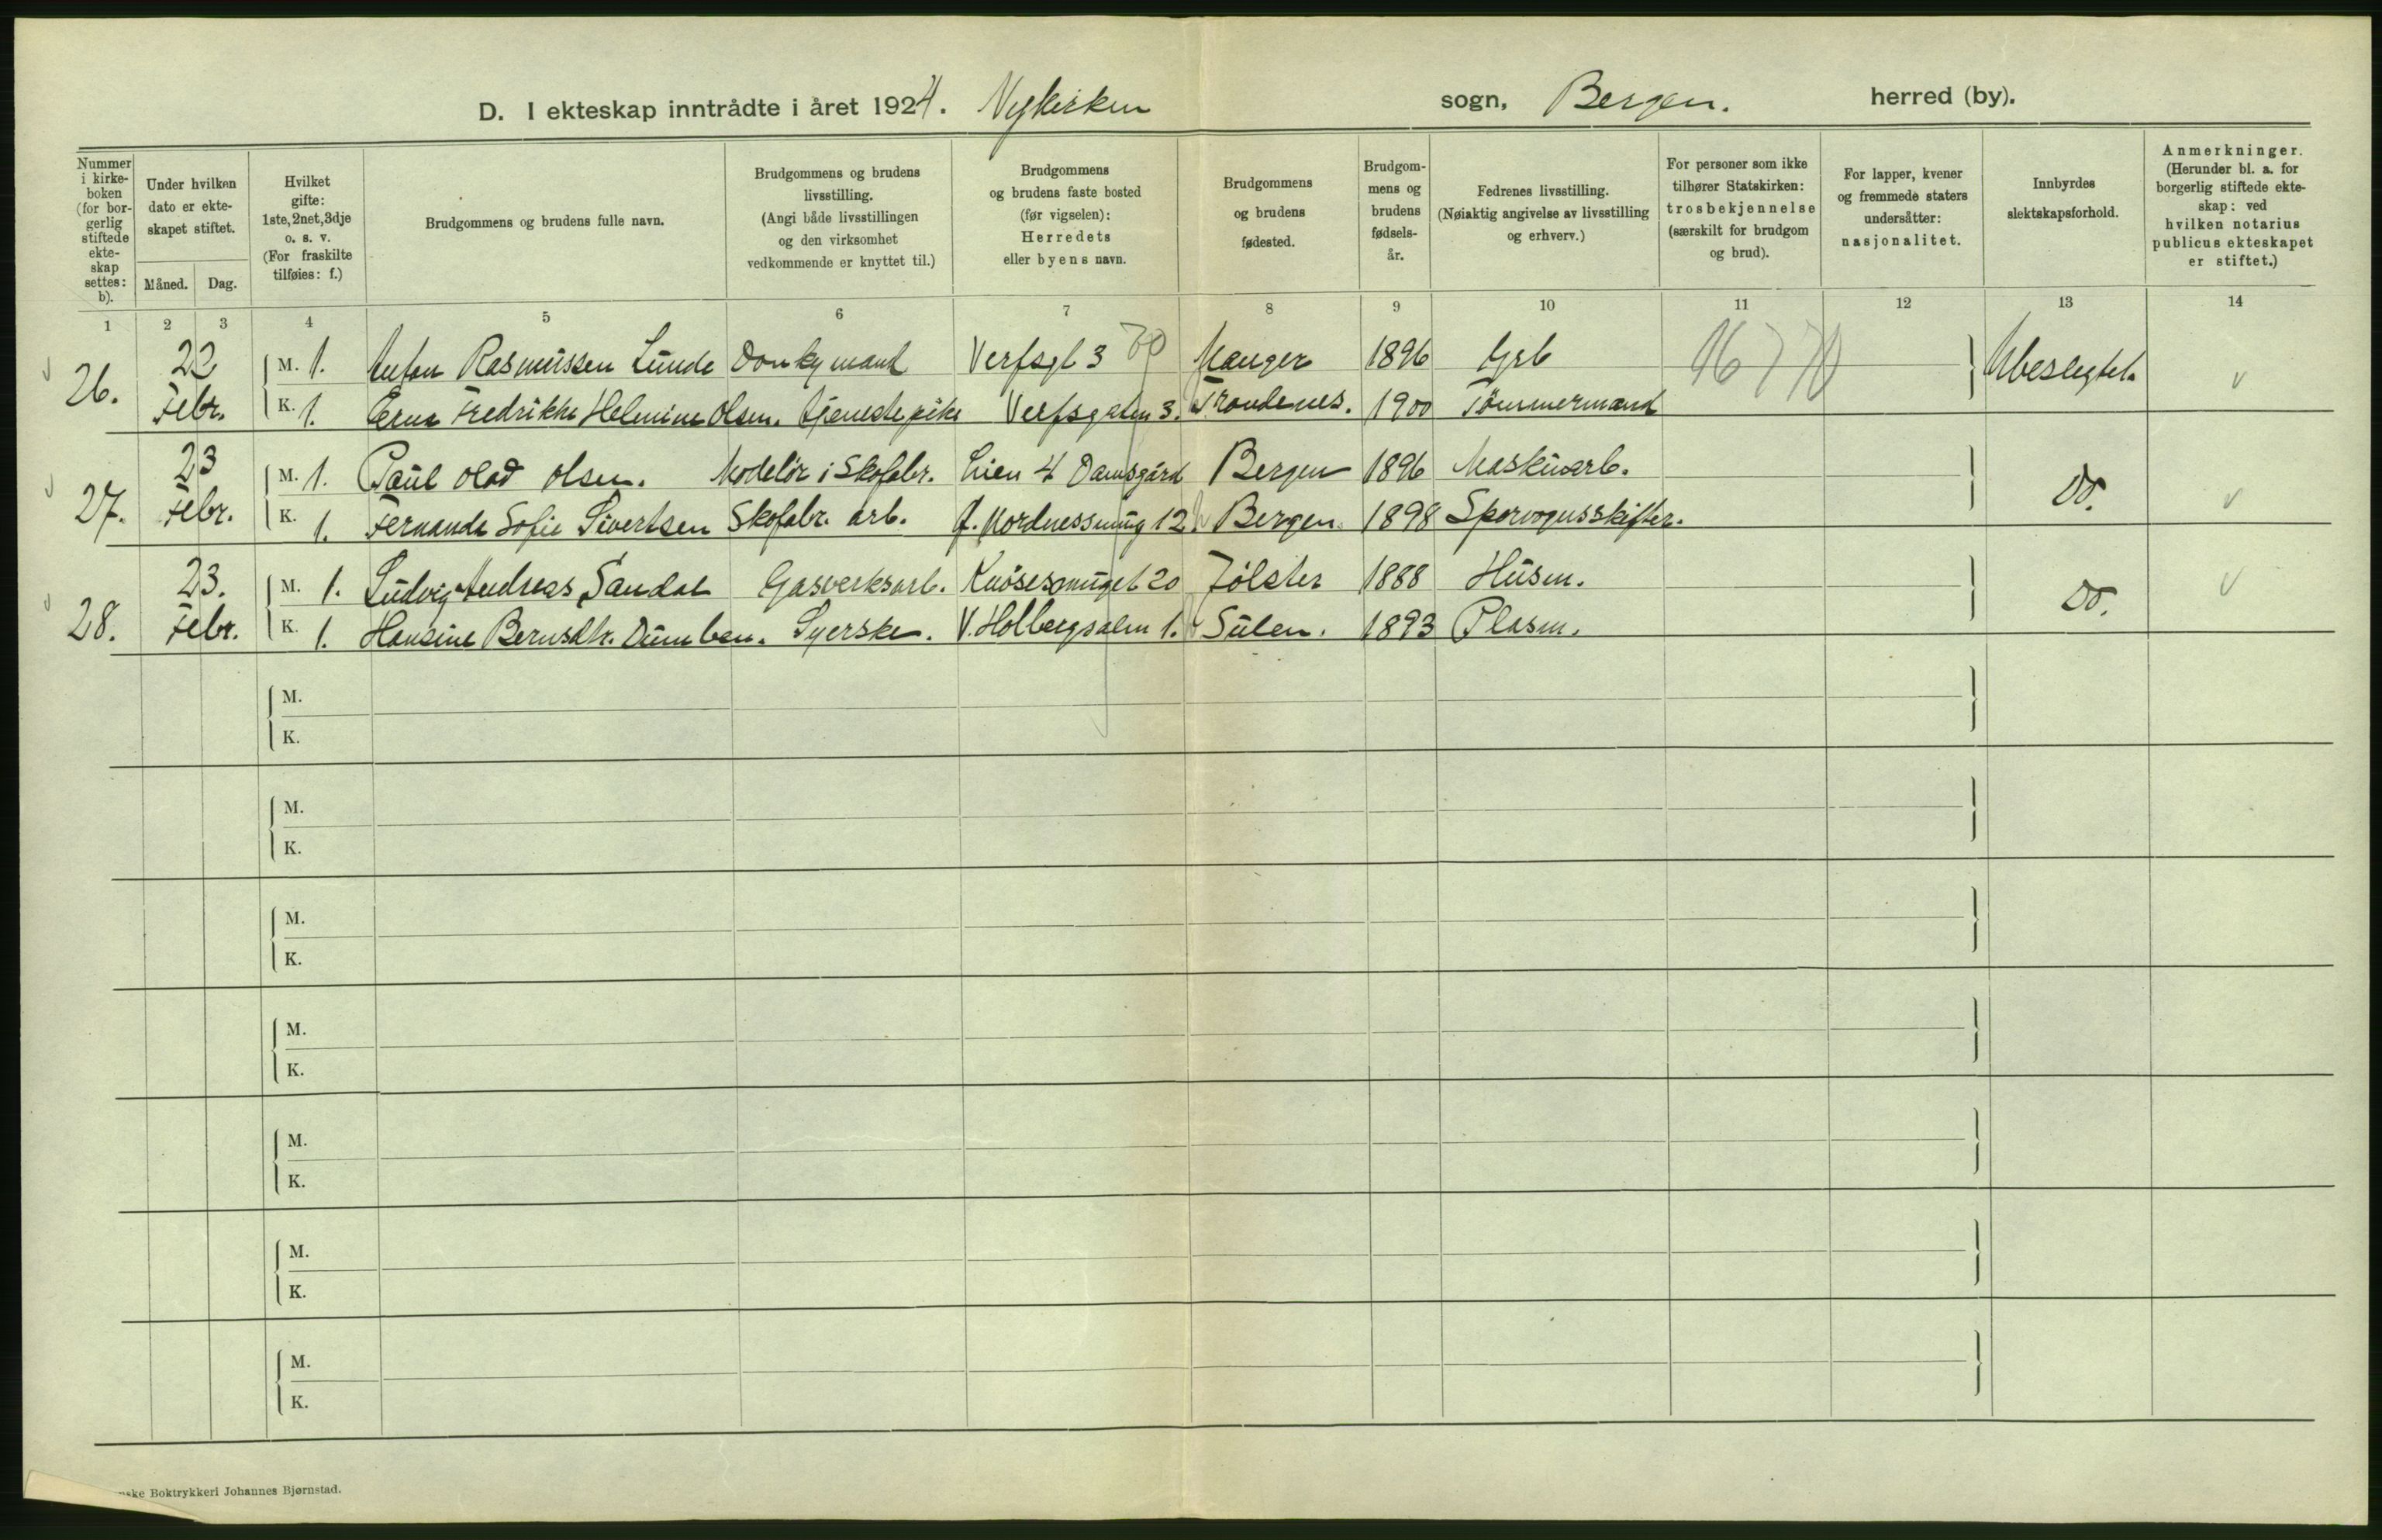 D. I ekteskap inntrådte i året 1924. Nykirken sogn, Bergen. herred (by).
Nummer i kirke-boken (for bor-gerlig stiftede ekte-skap settes: b).
Under hvilken dato er ekte-skapet stiftet.
Måned. Dag.
Hvilket gifte: 1ste, 2net, 3dje o. s. v. (For fraskilte tilføies: f.)
Brudgommens og brudens fulle navn.
Brudgommens og brudens livsstilling. (Angi både livsstillingen og den virksomhet vedkommende er knyttet til.)
Brudgommens og brudens faste bosted (før vigselen): Herredets eller byens navn.
Brudgommens og brudens fødested.
Brudgom-mens og brudens fødsels-år.
Fedrenes livsstilling. (Nøiaktig angivelse av livsstilling og erhverv.)
For personer som ikke tilhører Statskirken: trosbekjennelse (særskilt for brudgom og brud).
For lapper, kvener og fremmede staters undersåtter: nasjonalitet.
Innbyrdes slektskapsforhold.
Anmerkninger. (Herunder bl. a. for borgerlig stiftede ekte-skap: ved hvilken notarius publicus ekteskapet er stiftet.)
1 2 3 4 5 6 7 8 9 10 11 12 13 14
26. 22 Febr. M. 1. Anton Rasmussen Lunde Donkymand Verfsgt 3 Manger 1896 Grb Ubeslegtet.
K. 1. Erna Fredrikke Helmine Olsen. tjenestepike Verfsgaten 3. Trondenes. 1900 Tömmermand
27. 23 Febr. M. 1. Paul Olad Olsen. Modelör i Skofabr. Lien 4 Damsgård Bergen 1896 Maskinarb. Do.
K. 1. Fernanda Sofie Sivertsen Skofabr. arb. Nordnessmug 12 Bergen. 1898 Sporvognsskifter.
28. 23. Febr. M. 1. Ludvig Andreas Sandal Gasverksarb. Knösesmuget 20 Jölster 1888 Husm. Do.
K. 1. Hansine Bernsdtr. Dumben. Syerske. V. Holbergsalm 1. Sulen. 1893 Plasm.
M.
K.
M.
K.
M.
K.
M.
K.
M.
K.
M.
K.
M.
K.
Boktrykkeri Johannes Bjørnstad.